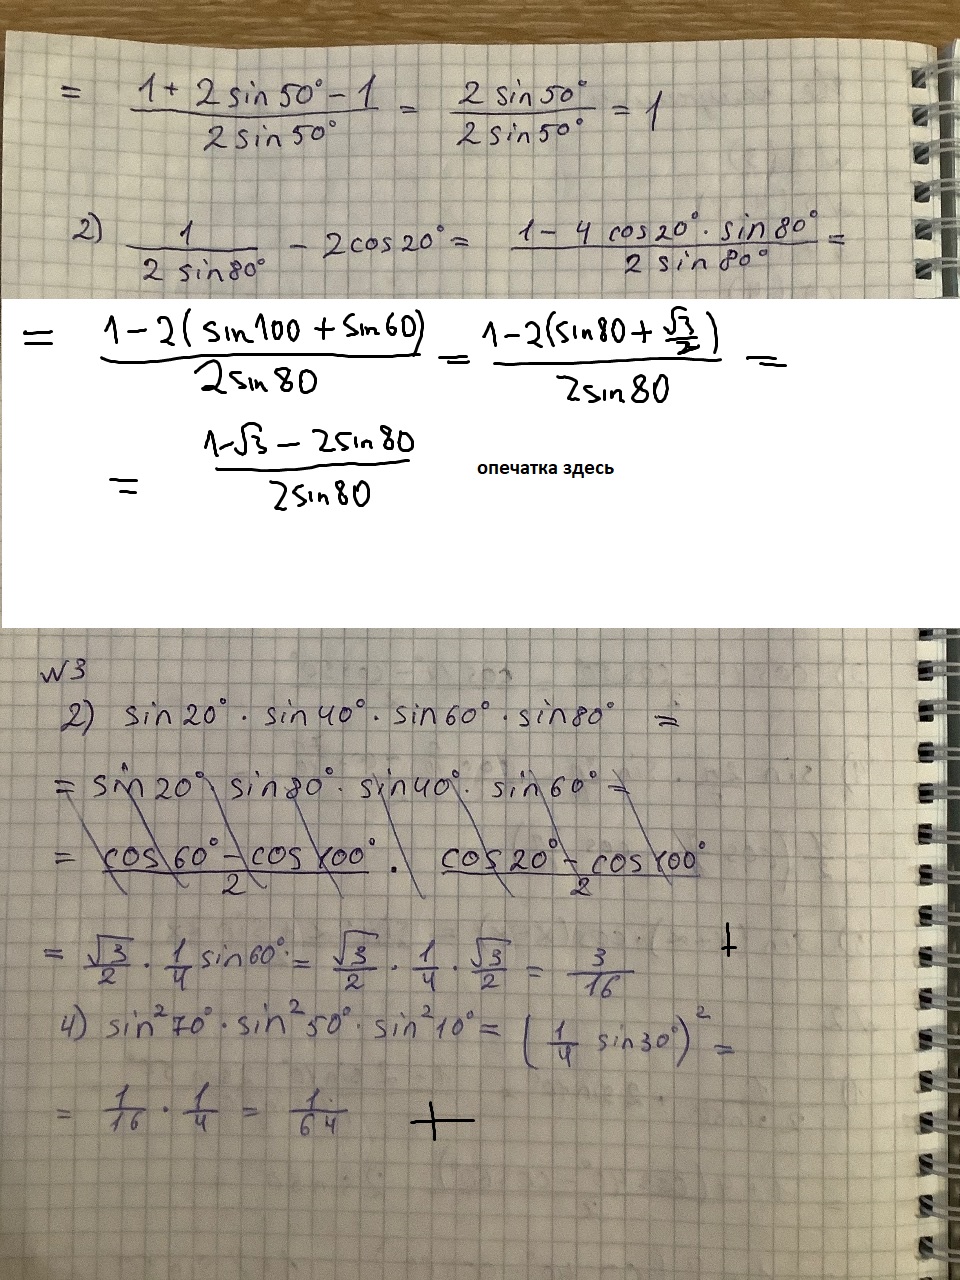 = (1 + 2 sin 50° - 1)/(2 sin 50°) = (2 sin 50°)/(2 sin 50°) = 1
2) 1/(2 sin 80°) - 2 cos 20° = (1 - 4 cos 20° · sin 80°)/(2 sin 80°) =
= (1 - 2(sin 100 + sin 60))/(2 sin 80) = (1 - 2(sin 80 + √3/2))/(2 sin 80) =
= (1 - √3 - 2 sin 80)/(2 sin 80) опечатка здесь
№3
2) sin 20° · sin 40° · sin 60° · sin 80° =
= sin 20° · sin 80° · sin 40° · sin 60° =
= (cos 60° - cos 100°)/2 · (cos 20° - cos 100°)/2
= √3/2 · 1/4 sin 60° = √3/2 · 1/4 · √3/2 = 3/16 +
4) sin² 70° · sin² 50° · sin² 10° = (1/4 sin 30°)² =
= 1/16 · 1/4 = 1/64 +